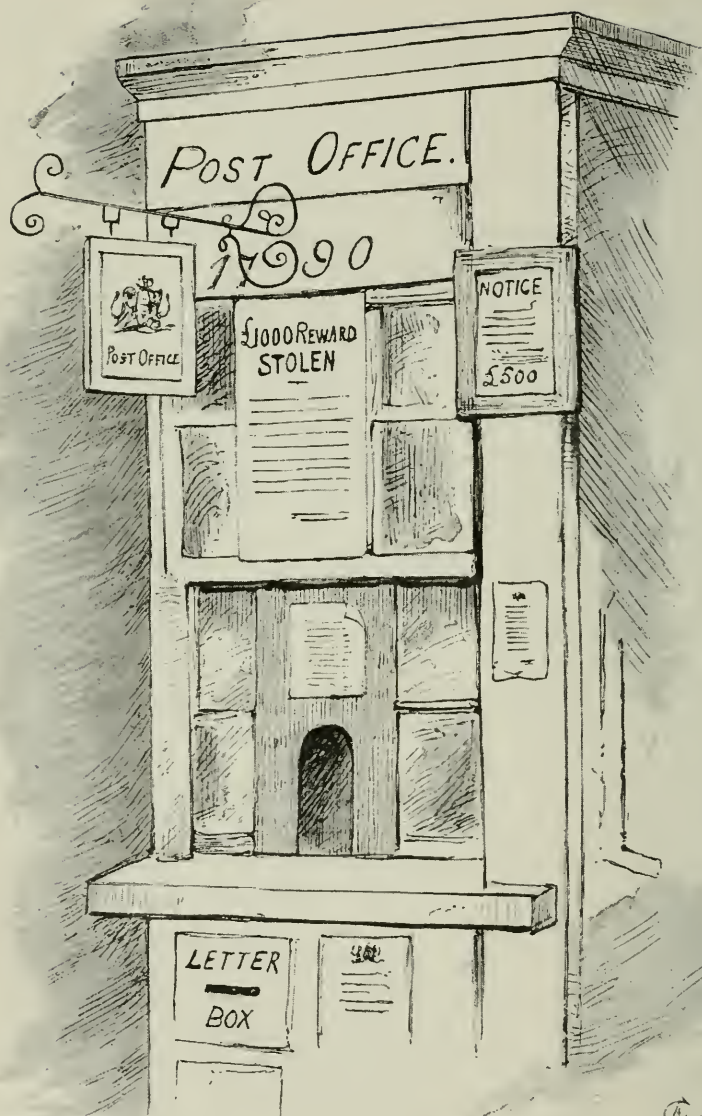 POST OFFICE.
1790
POST OFFICE
£1000 REWARD
STOLEN
NOTICE
£500
LETTER
BOX